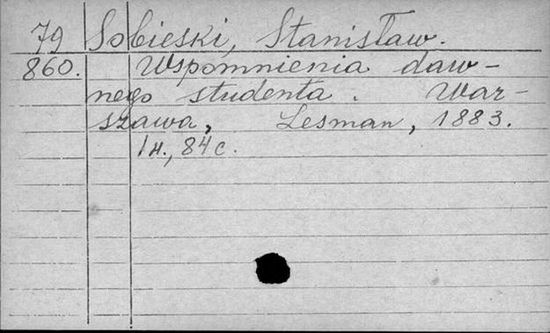 79 Sobieski, Stanisław.
860. Wspomnienia daw-
nego studenta. War-
szawa, Lesman, 1883.
1н., 84 с.